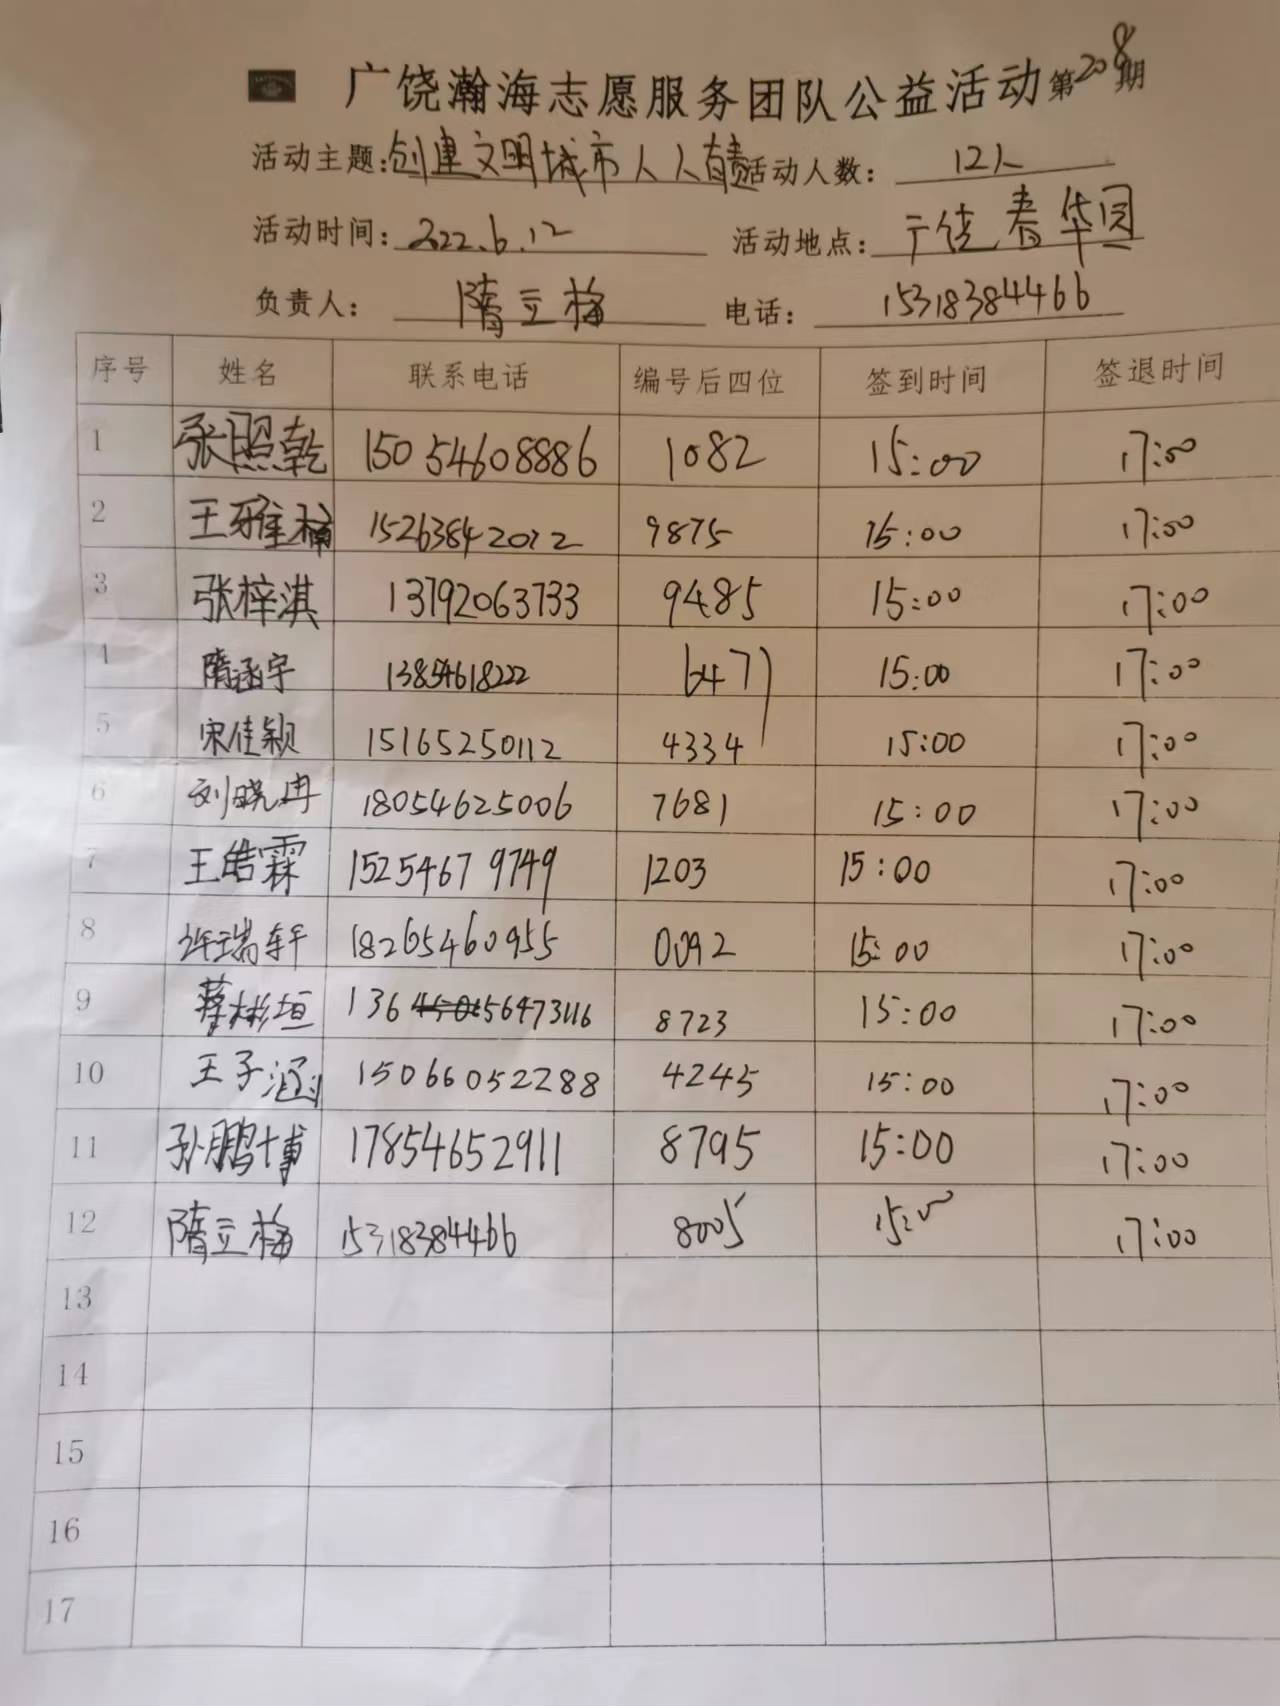 广饶瀚海志愿服务团队公益活动第208期
活动主题:创建文明城市人人有责 活动人数: 12人
活动时间: 2022.6.12 活动地点: 广饶春华园
负责人: 隋立梅 电话: 15318384466
序号 姓名 联系电话 编号后四位 签到时间 签退时间
1 张照乾 15054608886 1082 15:00 17:00
2 王雅楠 15263842072 9875 15:00 17:00
3 张梓淇 13792063733 9485 15:00 17:00
4 隋函宇 13854618222 6471 15:00 17:00
5 宋佳颖 15165250112 4334 15:00 17:00
6 刘晓冉 18054625006 7681 15:00 17:00
7 王皓霖 15254679749 1203 15:00 17:00
8 许瑞轩 18265460955 0092 15:00 17:00
9 蔡彬垣 13656473116 8723 15:00 17:00
10 王子涵 15066052288 4245 15:00 17:00
11 孙鹏博 17854652911 8795 15:00 17:00
12 隋立梅 15318384466 8005 15:00 17:00
13
14
15
16
17